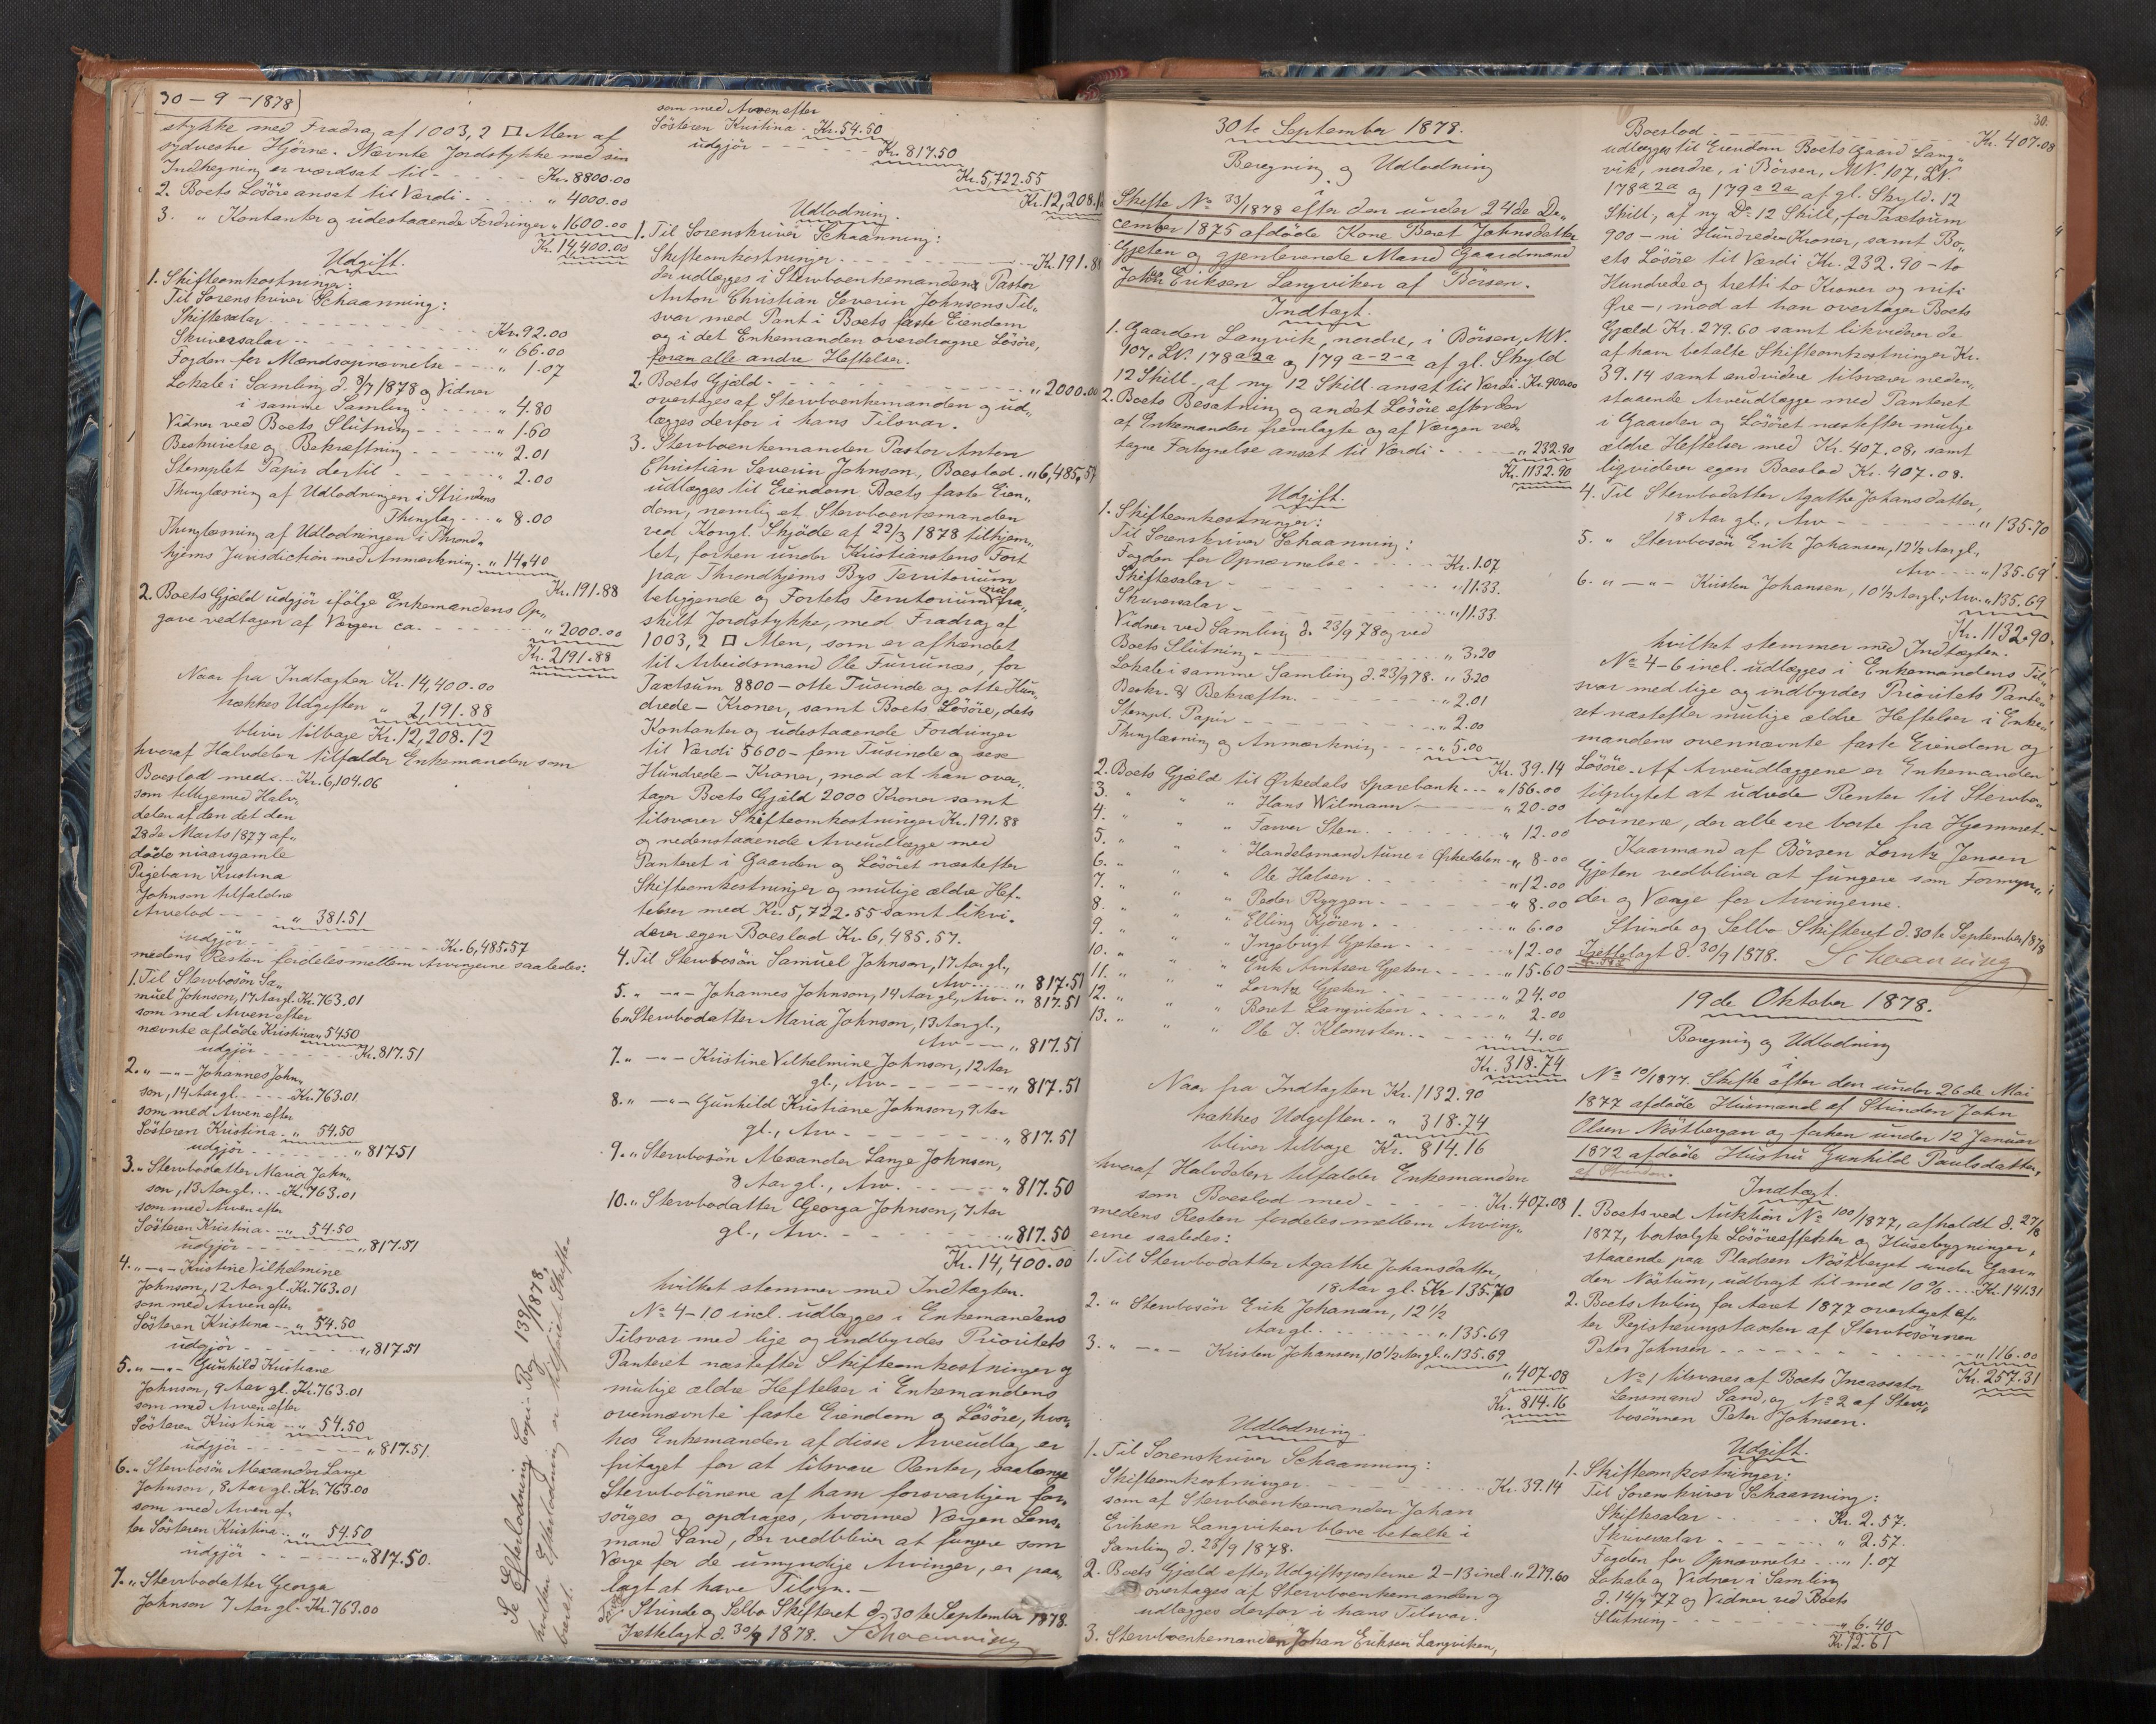 30 – 9 – 1878
stykke med Fradrag af 1003,2 □ Alen af
sydvestre Hjørne. Nævnte Jordstykke med sin
Indhegning er værdsat til - - - Kr. 8800.00
2. Boets Løsøre ansat til Værdi - - " 4000.00
3. " Kontanter og udestaaende Fordringer " 1600.00
Kr. 14,400.00
Udgift.
1. Skifteomkostninger:
Til Sorenskriver Schaanning:
Skiftesalar - - - Kr. 92.00
Skriversalar - - - " 66.00
Fogden for Mændsopnævnelse - - " 1.07
Lokale i Samling d. 8/7 1878 og Vidner
i samme Samling - - " 4.80
Vidner ved Boets Slutning - - - " 1.60
Beskrivelse og Bekræftning - - - " 2.01
Stemplet Papir dertil - - - " 2.00
Thinglæsning af Udlodningen i Strindens
Thinglag - - - " 8.00
Thinglæsning af Udlodningen i Thrond„
hjems Jurisdiction med Anmærkning . " 14.40
Kr. 191.88
2. Boets Gjæld udgjør ifølge Enkemandens Op„
gave vedtagen af Værgen ca. - - - " 2000.00
Kr. 2191.88
Naar fra Indtægten Kr. 14,400.00
trækkes Udgiften " 2,191.88
bliver tilbage Kr. 12,208.12
hvoraf Halvdelen tilfalder Enkemanden som
Boeslod med - - Kr. 6,104.06
som tilligemed Halv„
delen af den det den
28de Marts 1877 af„
døde niaarsgamle
Pigebarn Kristina
Johnson tilfaldne
Arvelod - - - " 381.51
udgjør - - - Kr. 6,485.57
medens Resten fordeles mellem Arvingerne saaledes:
1. Til Stervbosøn Sa„
muel Johnson, 17 Aar gl. Kr. 763.01
som med Arven efter
nævnte afdøde Kristina " 54.50
udgjør - - - Kr. 817.51
2. " —"— Johannes John„
son, 14 Aar gl. - - - Kr. 763.01
som med Arven efter
Søsteren Kristina - " 54.50
udgjør - - - " 817.51
3. " Stervbodatter Maria John„
son, 13 Aar gl. - - - Kr. 763.01
som med Arven efter
Søsteren Kristina - " 54.50
udgjør - - - " 817.51
4. " —"— Kristine Vilhelmine
Johnson, 12 Aar gl. Kr. 763.01
som med Arven efter
Søsteren Kristina - - " 54.50
udgjør - - - " 817.51
5. " —"— Gunhild Kristiane
Johnson, 9 Aar gl. Kr. 763.01
som med Arven efter
Søsteren Kristina - " 54.50
udgjør - - - " 817.51.
6. " Stervbosøn Alexander Lange
Johnson, 8 Aar gl. Kr. 763.00
som med Arven ef„
ter Søsteren Kristina . . " 54.50
udgjør - - - " 817.50.
7. " Stervbodatter Georga
Johnson 7 Aar gl. Kr. 763.00
Se Efterlodning Copi-Bog 139/1878,
hvilken Efterlodning er tilføiet Skifte„
brevet.
som med Arven efter
Søsteren Kristina - Kr. 54.50
udgjør - - - Kr. 817.50
Kr. 5,722.55
Kr. 12,208.12
Udlodning.
1. Til Sorenskriver Schaanning:
Skifteomkostninger - - - Kr. 191.88
der udlægges i Stervboenkemanden Pastor
Anton Christian Severin Johnsons Til„
svar med Pant i Boets faste Eiendom
og i det Enkemanden overdragne Løsøre,
foran alle andre Heftelser.
2. Boets Gjæld - - - " 2000.00
overtages af Stervboenkemanden og ud„
lægges derfor i hans Tilsvar.
3. Stervboenkemanden Pastor Anton
Christian Severin Johnson, Boeslod . " 6,485.57
udlægges til Eiendom Boets faste Eien„
dom, nemlig et Stervboenkemanden
ved Kongl. Skjøde af 22/3 1878 tilhjem„
let, forhen under Kristianstens Fort
paa Throndhjems Bys Territorium
beliggende og Fortets Territorium fra„
skilt Jordstykke, med Fradrag af
1003,2 □ Alen, som er afhændet
til Arbeidsmand Ole Furunæs, for
Taxtsum 8800 – otte Tusinde og otte Hun„
drede – Kroner, samt Boets Løsøre, dets
Kontanter og udestaaende Fordringer
til Værdi 5600 – fem Tusinde og sex
Hundrede – Kroner, mod at han over„
tager Boets Gjæld 2000 Kroner samt
tilsvarer Skifteomkostninger Kr. 191.88
og nedenstaaende Arveudlægge med
Panteret i Gaarden og Løsøret næstefter
Skifteomkostninger og mulige ældre Hef„
telser med Kr. 5,722.55 samt likvi„
derer egen Boeslod Kr. 6,485.57.
4. Til Stervbosøn Samuel Johnson, 17 Aar gl.,
Arv - - - " 817.51
5. " —"— Johannes Johnson, 14 Aar gl., Arv " 817.51
6. " Stervbodatter Maria Johnson, 13 Aar gl.,
Arv - - - " 817.51
7. " —"— Kristine Vilhelmine Johnson, 12 Aar
gl., Arv - - - " 817.51
8. " —"— Gunhild Kristiane Johnson, 9 Aar
gl., Arv - - - " 817.51
9. " Stervbosøn Alexander Lange Johnson,
8 Aar gl., Arv. - - - " 817.50
10. " Stervbodatter Georga Johnson, 7 Aar
gl., Arv. - - - " 817.50
Kr. 14,400.00
hvilket stemmer med Indtægten.
No 4–10 incl. udlægges i Enkemandens
Tilsvar med lige og indbyrdes Prioritets
Panteret næstefter Skifteomkostninger og
mulige ældre Heftelser i Enkemandens
ovennævnte faste Eiendom og Løsøre, hvor„
hos Enkemanden af disse Arveudlæg er
fritaget for at tilsvare Renter, saalænge
Stervbobørnene af ham forsvarligen for„
sørges og opdrages, hvormed Værgen Lens„
mand Sand, der vedbliver at fungere som
Værge for de umyndige Arvinger, er paa„
lagt at have Tilsyn. –
Strinde og Selbo Skifteret d. 30te September 1878.
Ivetlagt d. 30/9 1878. Schaanning
30te September 1878.
Beregning og Udlodning
i
Skifte No 33/1878 efter den under 24de De„
cember 1875 afdøde Kone Beret Johnsdatter
Gjeten og gjenlevende Mand Gaardmand
Johan Eriksen Langviken af Børsen.
Indtægt.
1. Gaarden Langvik, nordre, i Børsen, MN.
107, LN. 178 a 2 a og 179 a - 2 - a af gl. Skyld
12 Skill., af ny 12 Skill. ansat til Værdi - Kr. 900.00
2. Boets Besætning og andet Løsøre efter der
af Enkemanden fremlagte og af Værgen ved„
tagne Fortegnelse ansat til Værdi - - - " 232.90
Kr. 1132.90
Udgift.
1. Skifteomkostninger:
Til Sorenskriver Schaanning:
Fogden for Opnævnelse - - - Kr. 1.07
Skiftesalar - - - " 11.33.
Skriversalar - - - " 11.33.
Vidner ved Samling d. 23/9 78 og ved
Boets Slutning - - - " 3.20
Lokale i samme Samling d. 23/9 78. " 3.20
Beskr. & Bekræftn. - - - " 2.01
Stempl. Papir - - - " 2.00
Thinglæsning og Anmærkning - - - " 5.00
Kr. 39.14
2. Boets Gjæld til Ørkedals Sparebank - - - " 156.00
3. " " " Hans Wilmann - - - " 20.00
4. " " " Farver Sten - - - " 12.00
5. " " " Handelsmand Aune i Ørkedalen - " 8.00
6. " " " Ole Halsen - - - " 12.00
7. " " " Peder Ryggen - - - " 8.00
8. " " " Elling Kjøren - - - " 6.00
9. " " " Ingebrigt Gjeten - - - " 12.00
10. " " " Erik Arntsen Gjeten - - - " 15.60
11. " " " Lorntz Gjeten - - - " 24.00
12. " " " Beret Langviken - - - " 2.00
13. " " " Ole J. Klomsten - - - " 4.00
Kr. 318.74
Naar fra Indtægten Kr. 1132.90
trækkes Udgiften - " 318.74
bliver tilbage Kr. 814.16
hvoraf Halvdelen tilfalder Enkemanden
som Boeslod med - - - Kr. 407.08
medens Resten fordeles mellem Arving„
erne saaledes:
1. Til Stervbodatter Agathe Johansdatter,
18 Aar gl. Kr 135.70
2. " Stervbosøn Erik Johansen, 12 1/2
Aar gl. - - - " 135.69
3. " —"— Kristen Johansen, 10 1/2 Aar gl. " 135.69
" 407.08
Kr. 814.16
Udlodning.
1. Til Sorenskriver Schaanning:
Skifteomkostninger - - - Kr. 39.14
som af Stervboenkemanden Johan
Eriksen Langviken bleve betalte i
Samling d. 23/9 1878.
2. Boets Gjæld efter Udgiftsposterne 2–13 incl. " 279.60
overtages af Stervboenkemanden og
udlægges derfor i hans Tilsvar.
3. Stervboenkemanden Johan Eriksen Langviken,
30.
Boeslod - - - Kr. 407.08
udlægges til Eiendom Boets Gaard Lang„
vik, nordre, i Børsen, MN. 107, LN
178 a 2 a og 179 a 2 a af gl. Skyld. 12
Skill., af ny Do 12 Skill., for Taxtsum
900 – ni Hundrede Kroner, samt Bo„
ets Løsøre til Værdi Kr. 232.90 – to
Hundrede og tretti to Kroner og nitti
Øre –, mod at han overtager Boets
Gjæld Kr. 279.60 samt likviderer de
af ham betalte Skifteomkostninger Kr.
39.14 samt endvidere tilsvarer neden„
staaende Arveudlægge med Panteret
i Gaarden og Løsøret næstefter mulige
ældre Heftelser med Kr. 407.08, samt
ligviderer egen Boeslod Kr. 407.08.
4. Til Stervbodatter Agathe Johansdatter,
18 Aar gl., Arv - - - " 135.70
5. " Stervbosøn Erik Johansen, 12 1/2 Aar gl.,
Arv - - - " 135.69
6. " —"— Kristen Johansen, 10 1/2 Aar gl., Arv. " 135.69
Kr. 1132.90.
hvilket stemmer med Indtægten.
No 4–6 incl. udlægges i Enkemandens Til„
svar med lige og indbyrdes Prioritets Pante„
ret næstefter mulige ældre Heftelser i Enke„
mandens ovennævnte faste Eiendom og
Løsøre. Af Arveudlæggene er Enkemanden
tilpligtet at udrede Renter til Stervbo„
børnene, der alle ere borte fra Hjemmet.
Kaarmand af Børsen Lorntz Jensen
Gjeten vedbliver at fungere som Formyn„
der og Værge for Arvingerne.
Strinde og Selbo Skifteret d. 30te September 1878
Ivetlagt d. 30/9 1878. Schaanning
19de Oktober 1878.
Beregning og Udlodning
i
No 10/1877. Skifte efter den under 26de Mai
1877 afdøde Husmand af Strinden John
Olsen Nøstbergan og forhen under 12 Januar
1872 afdøde Hustru Gunhild Paulsdatter,
af Strinden.
Indtægt.
1. Boets ved Auktion No 100/1877, afholdt d. 27/8
1877, bortsolgte Løsøreeffekter og Husebygninger,
staaende paa Pladsen Nøstberget under Gaar„
den Nøstum, udbragt til med 10 % - - - Kr. 141.31
2. Boets Avling for Aaret 1877 overtaget ef„
ter Registreringstaxten af Stervbosønnen
Peter Johnsen - - - " 116.00
Kr. 257.31
No 1 tilsvares af Boets Incassator
Lensmand Sand, og No 2 af Sterv„
bosønnen Peter Johnsen.
Udgift.
1. Skifteomkostninger:
Til Sorenskriver Schaanning:
Skiftesalar - - - Kr. 2.57.
Skriversalar - - - " 2.57.
Fogden for Opnævnelse - - - " 1.07
Lokale og Vidner i Samling
d. 14/7 77 og Vidner ved Boets
Slutning - - - " 6.40
Kr. 12.61